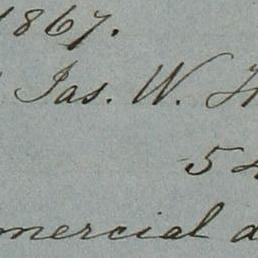 1867.
Jas. W.
5
mercial